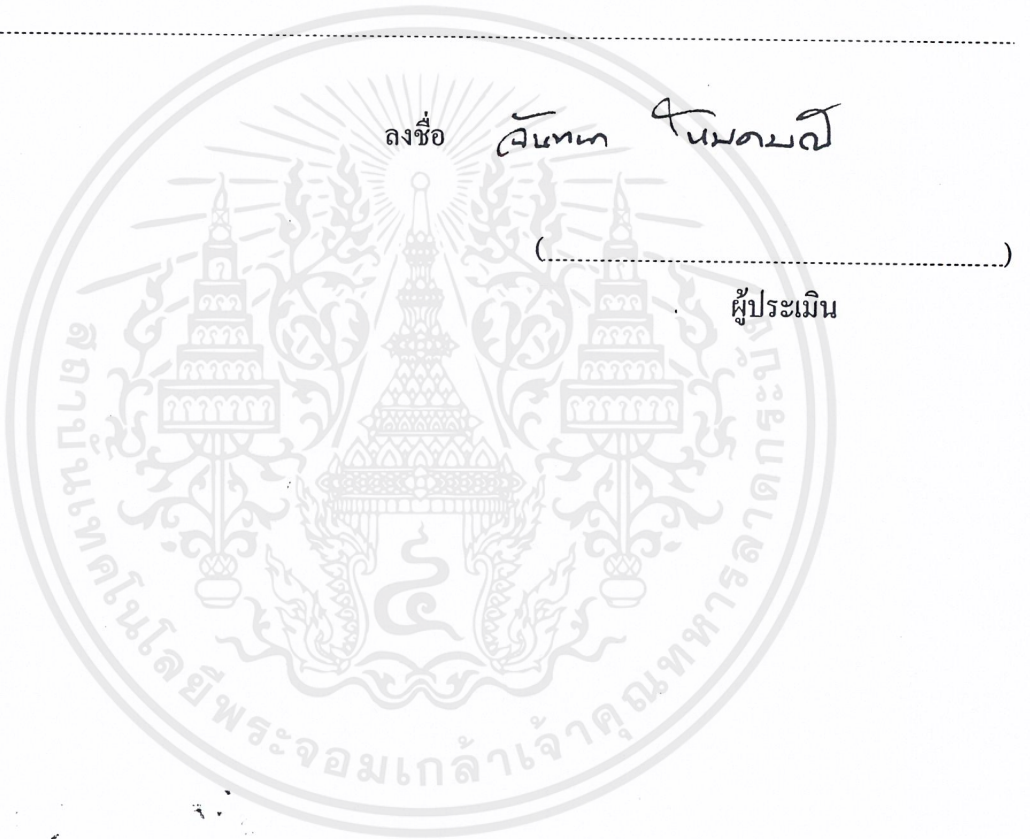 ลงชื่อ จันทนา โหมดมณี
(..............................)
ผู้ประเมิน
สถาบันเทคโนโลยีพระจอมเกล้าเจ้าคุณทหารลาดกระบัง